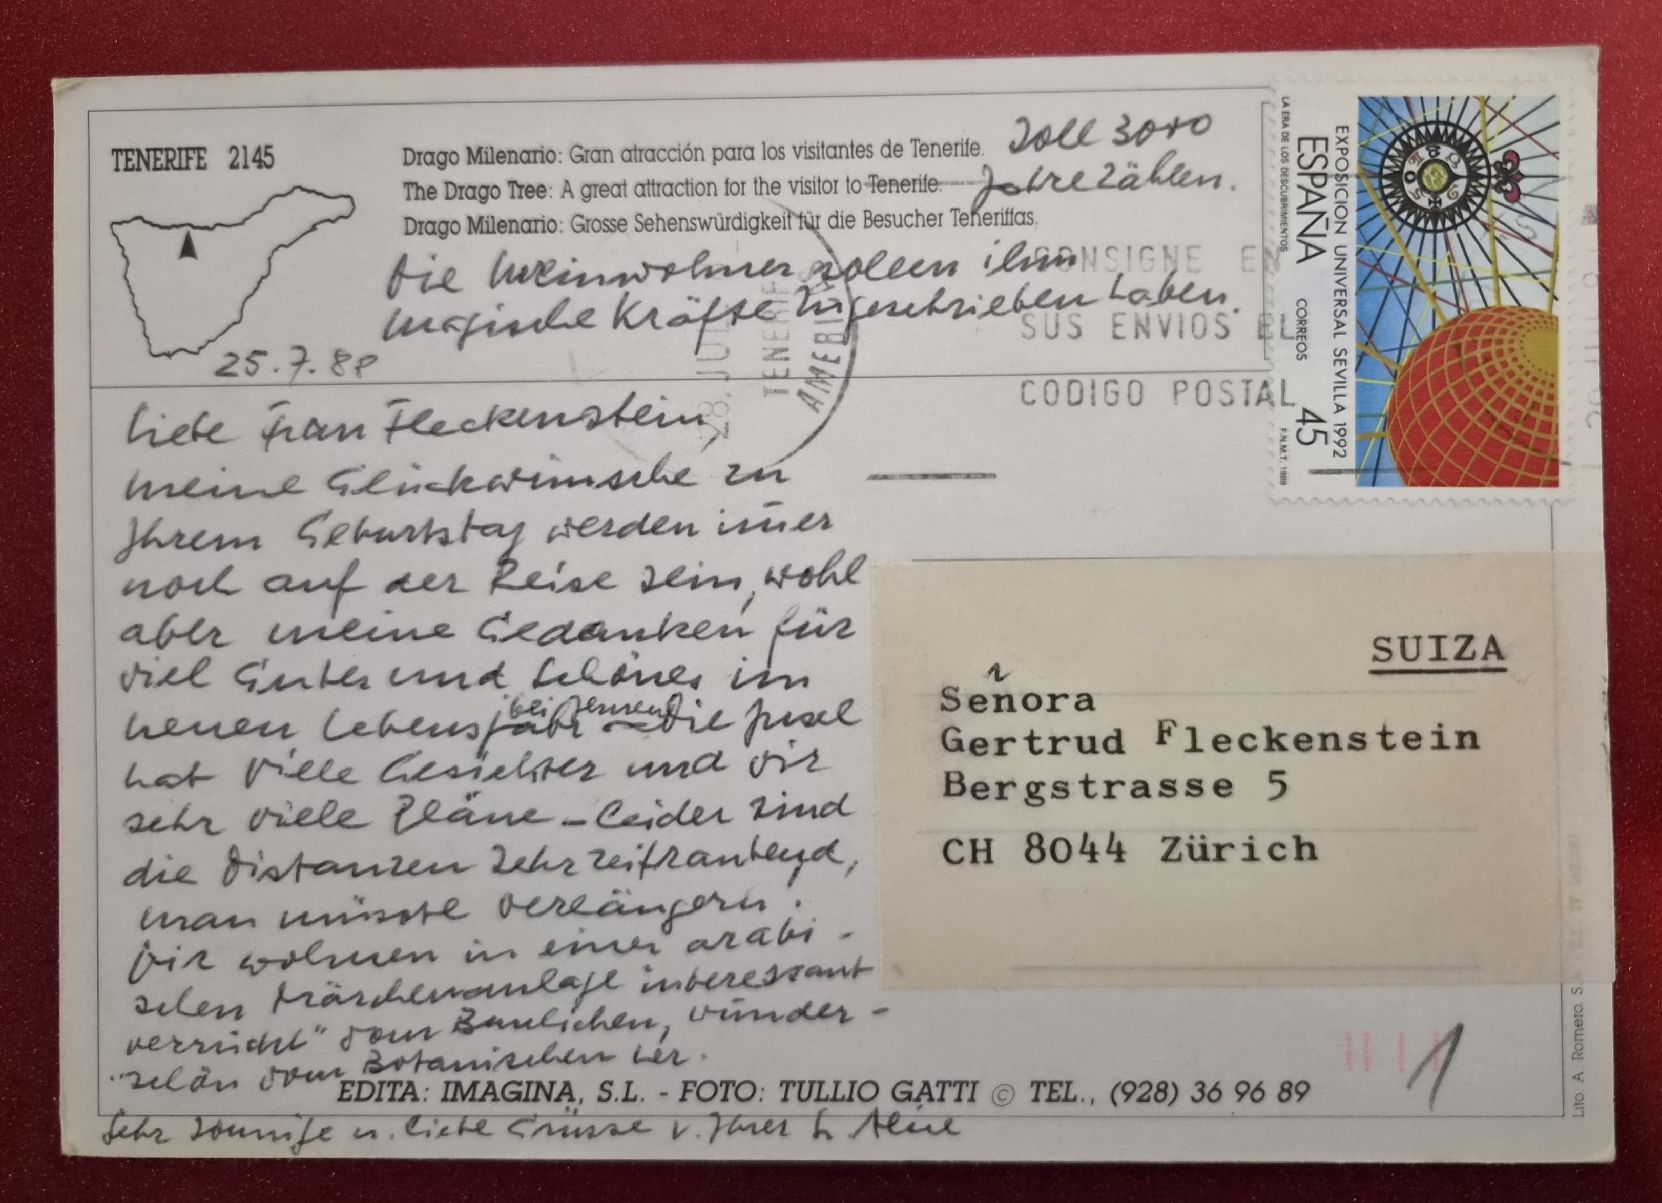 TENERIFE 2145
Drago Milenario: Gran atracción para los visitantes de Tenerife.
The Drago Tree: A great attraction for the visitor to Tenerife.
Drago Milenario: Grosse Sehenswürdigkeit für die Besucher Teneriffas.
Soll 3000
Jahre zählen.
Die Ureinwohner sollen ihm
magische Kräfte zugeschrieben haben.
25.7.88
Liebe Frau Fleckenstein,
meine Glückwünsche zu
Ihrem Geburtstag werden im̄er
noch auf der Reise sein, wohl
aber meine Gedanken für
viel Gutes und Schönes im
neuen Lebensjahr bei Ihnen – Die Insel
hat viele Gesichter und wir
sehr viele Pläne – leider sind
die Distanzen sehr zeitraubend,
man müsste verlängern.
Wir wohnen in einer arabi-
schen Märchenanlage interessant
verrückt" vom Baulichen, wunder-
"schön vom Botanischen her.
Sehr sonnige u. liebe Grüsse v. Ihrer
EDITA: IMAGINA, S.L. - FOTO: TULLIO GATTI © TEL., (928) 36 96 89
CONSIGNE EN
SUS ENVIOS EL
CODIGO POSTAL
28. JUL
TENERIFE
EXPOSICION UNIVERSAL SEVILLA 1992
ESPAÑA CORREOS 45
LA ERA DE LOS DESCUBRIMIENTOS F.N.M.T. 1988
SUIZA
Señora
Gertrud Fleckenstein
Bergstrasse 5
CH 8044 Zürich
1
Lito. A. Romero. S.